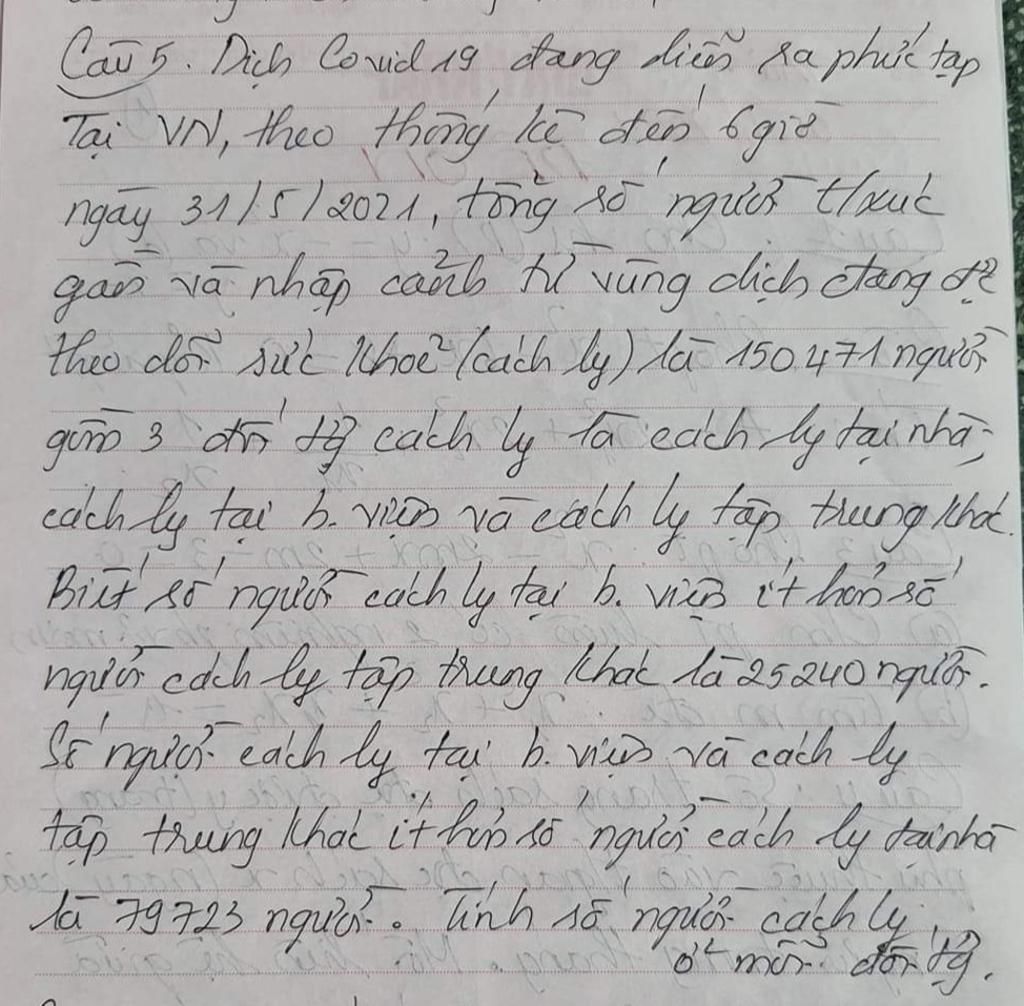 Câu 5. Dịch Covid 19 đang diễn ra phức tạp
Tại VN, theo thống kê đến 6 giờ
ngày 31/5/2021, tổng số người t/xúc
gần và nhập cảnh từ vùng dịch đang đc
theo dõi sức khoẻ (cách ly) là 150.471 người
gồm 3 đối tg cách ly là cách ly tại nhà,
cách ly tại b. viện và cách ly tập trung khác.
Biết số người cách ly tại b. viện ít hơn số
người cách ly tập trung khác là 25240 người.
Số người cách ly tại b. viện và cách ly
tập trung khác ít hơn số người cách ly tại nhà
là 79723 người. Tính số người cách ly
ở mỗi đối tg.